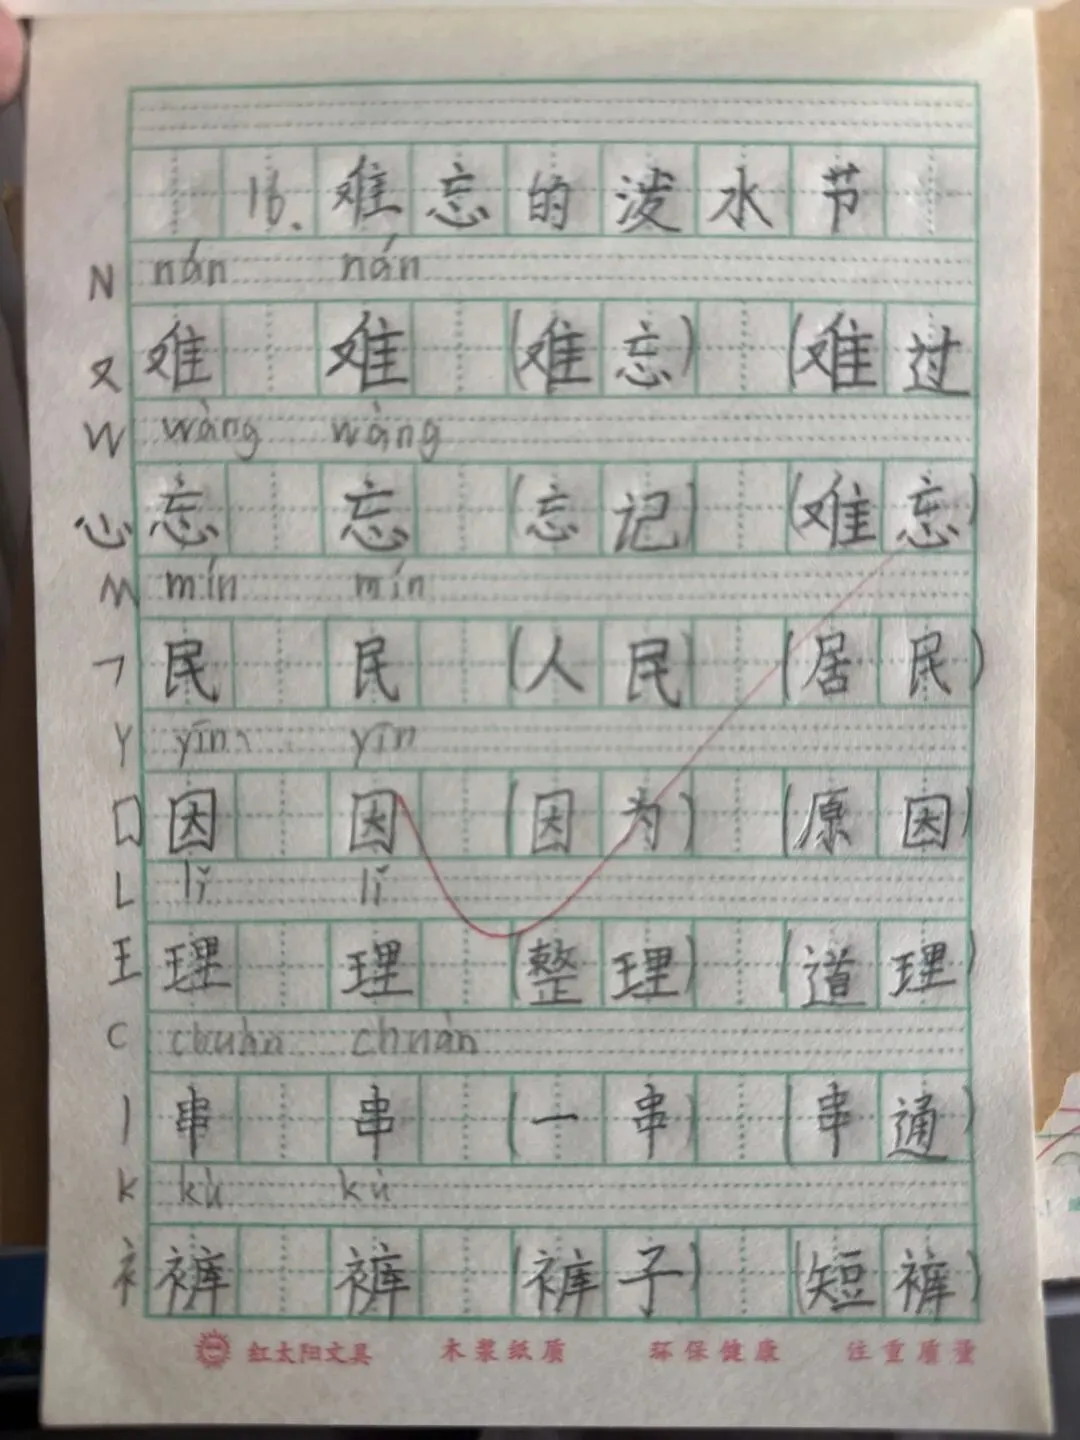 16、难忘的泼水节
N nán nán
又 难 难 (难忘) (难过
W wàng wàng
心 忘 忘 (忘记) (难忘)
M mín mín
㇕ 民 民 (人民) (居民)
Y yīn yīn
口 因 因 (因为) (原因)
L lǐ lǐ
王 理 理 (整理) (道理)
C chuàn chuàn
丨 串 串 (一串) (串通)
K kù kù
衤 裤 裤 (裤子) (短裤)
红太阳文具 木浆纸质 环保健康 注重质量